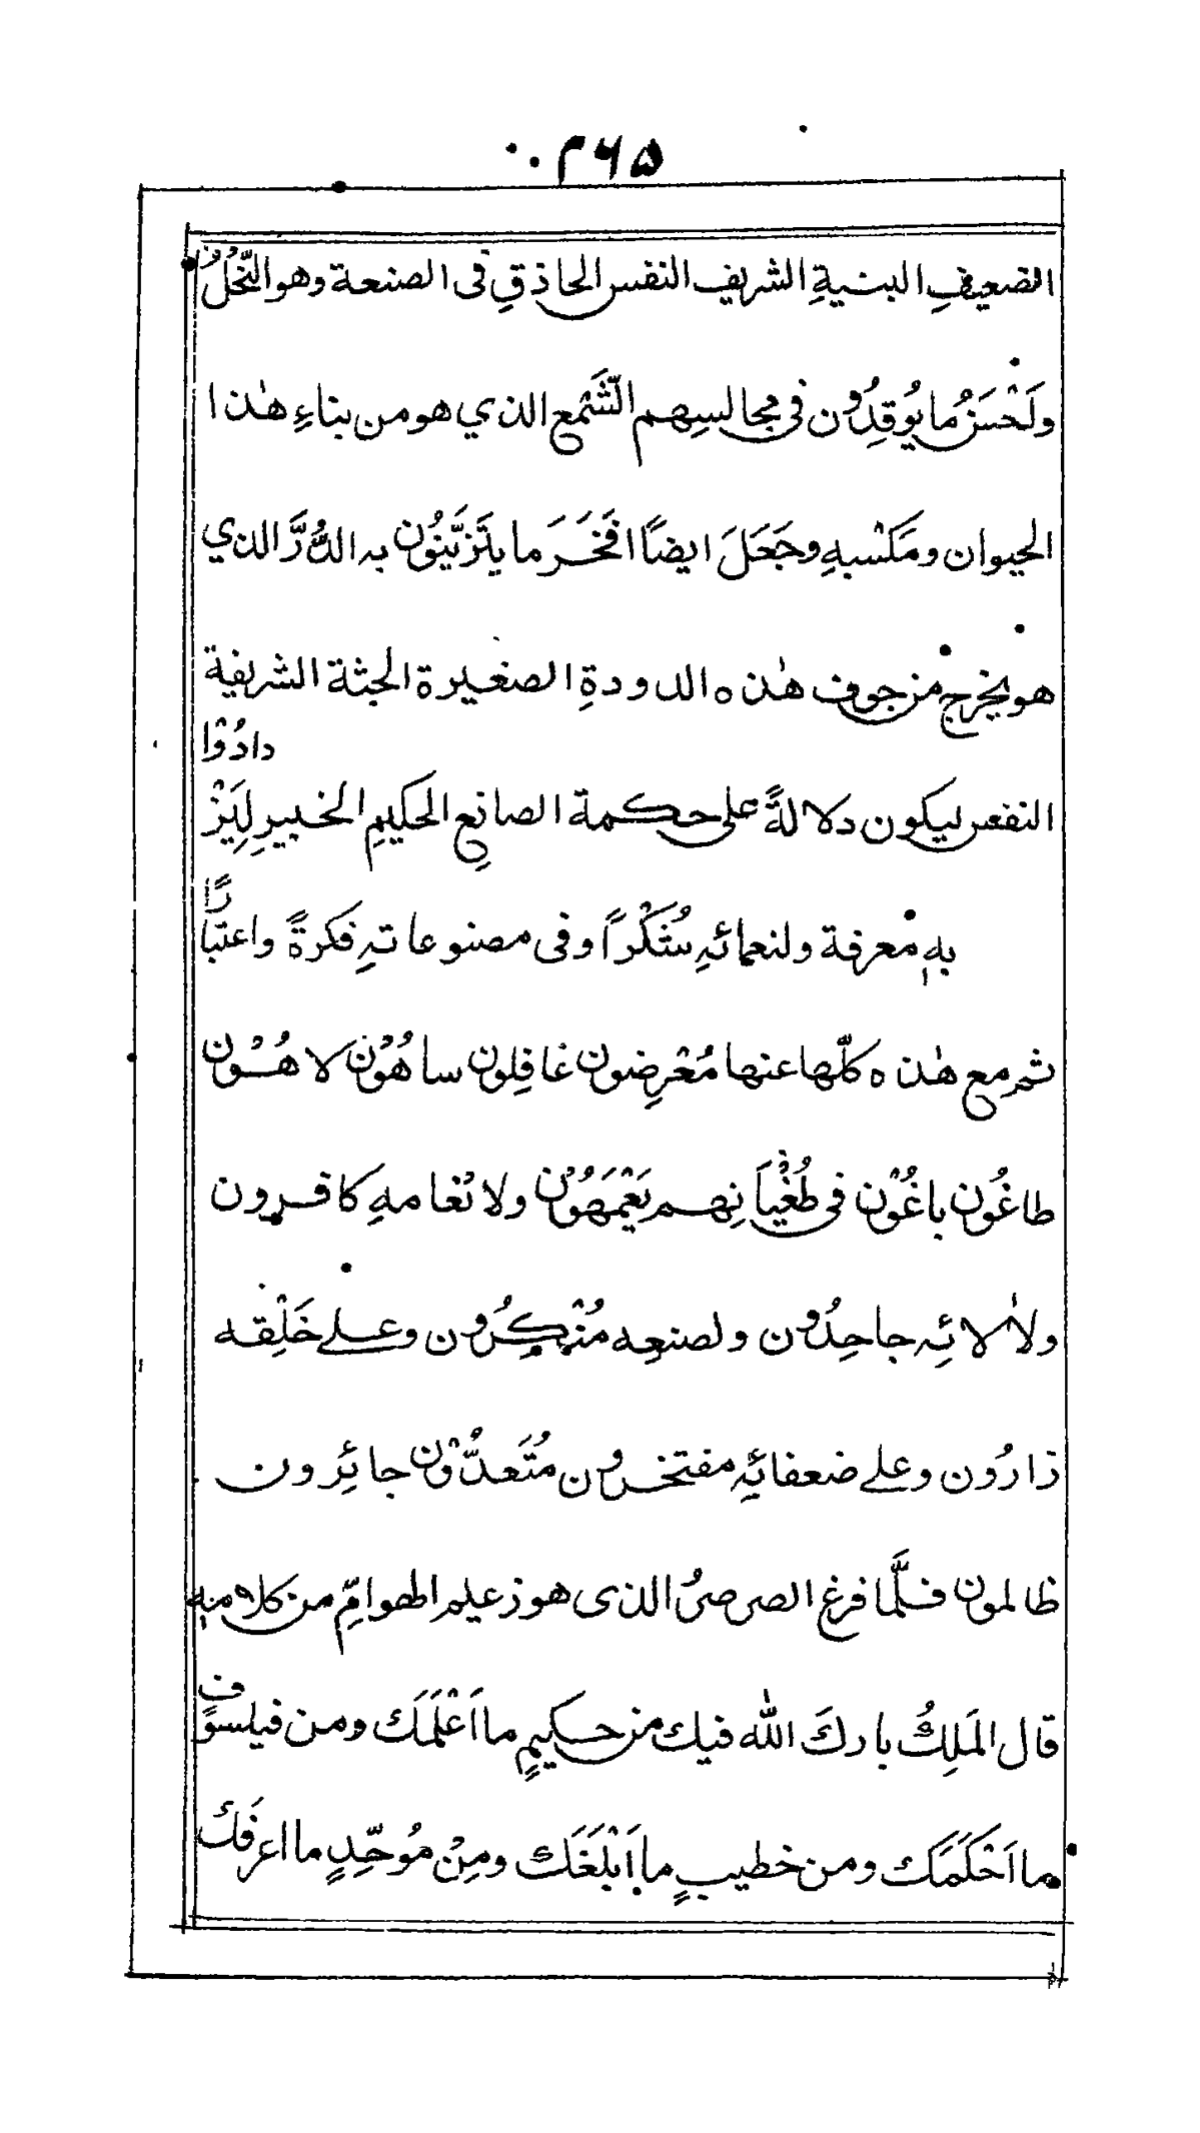 ۳۶۵
الضعيفِ البنيةِ الشريف النفس الحاذقِ فى الصنعة وهو النَّحْلُ
وَاَحْسَنُ ما يُوقِدُون فى مجالسِهم الشَّمْع الذي هو من بناءِ هٰذا
الحيوان ومَكْسبهِ وجَعَلَ ايضاً افَخَرَ ما يتَزيَّنُون به الدُّرَّ الذي
هو يخرج من جوف هٰذه الدودةِ الصغيرة الجثة الشريفة
النفس ليكون دلالةً على حكمة الصانِع الحكيمِ الخبيرِ لِيَزْدادُوْا
بهٖ معرفة ولنعمائهِ شُكْراً وفى مصنوعاتهِ فكرةً واعتبارًا
ثم مع هٰذه كلّها عنها مُعْرِضون غافِلون ساهُوْن لاهُوْن
طاغُون باغُوْن فى طُغْيَانِهم يَعْمَهُوْن ولانْعامهِ كافرون
ولاٰلائِه جاحِدُون ولصنعِه مُنْكِرُون وعلى خَلْقِه
زارُون وعلى ضعفائِهِ مفتخرون مُتَعدُّوْن جائِرون
ظالمون فلَّما فرغ الصرصرُ الذى هو زعيم الهوامِّ من كلامهٖ
قال المَلِكُ باركَ الله فيك من حكيمٍ ما اَعْلَمَك ومن فيلسوفٍ
ما اَحْكَمَك ومن خطيبٍ ما اَبْلَغَك ومِنْ مُوحّدٍ ما اعرفَك